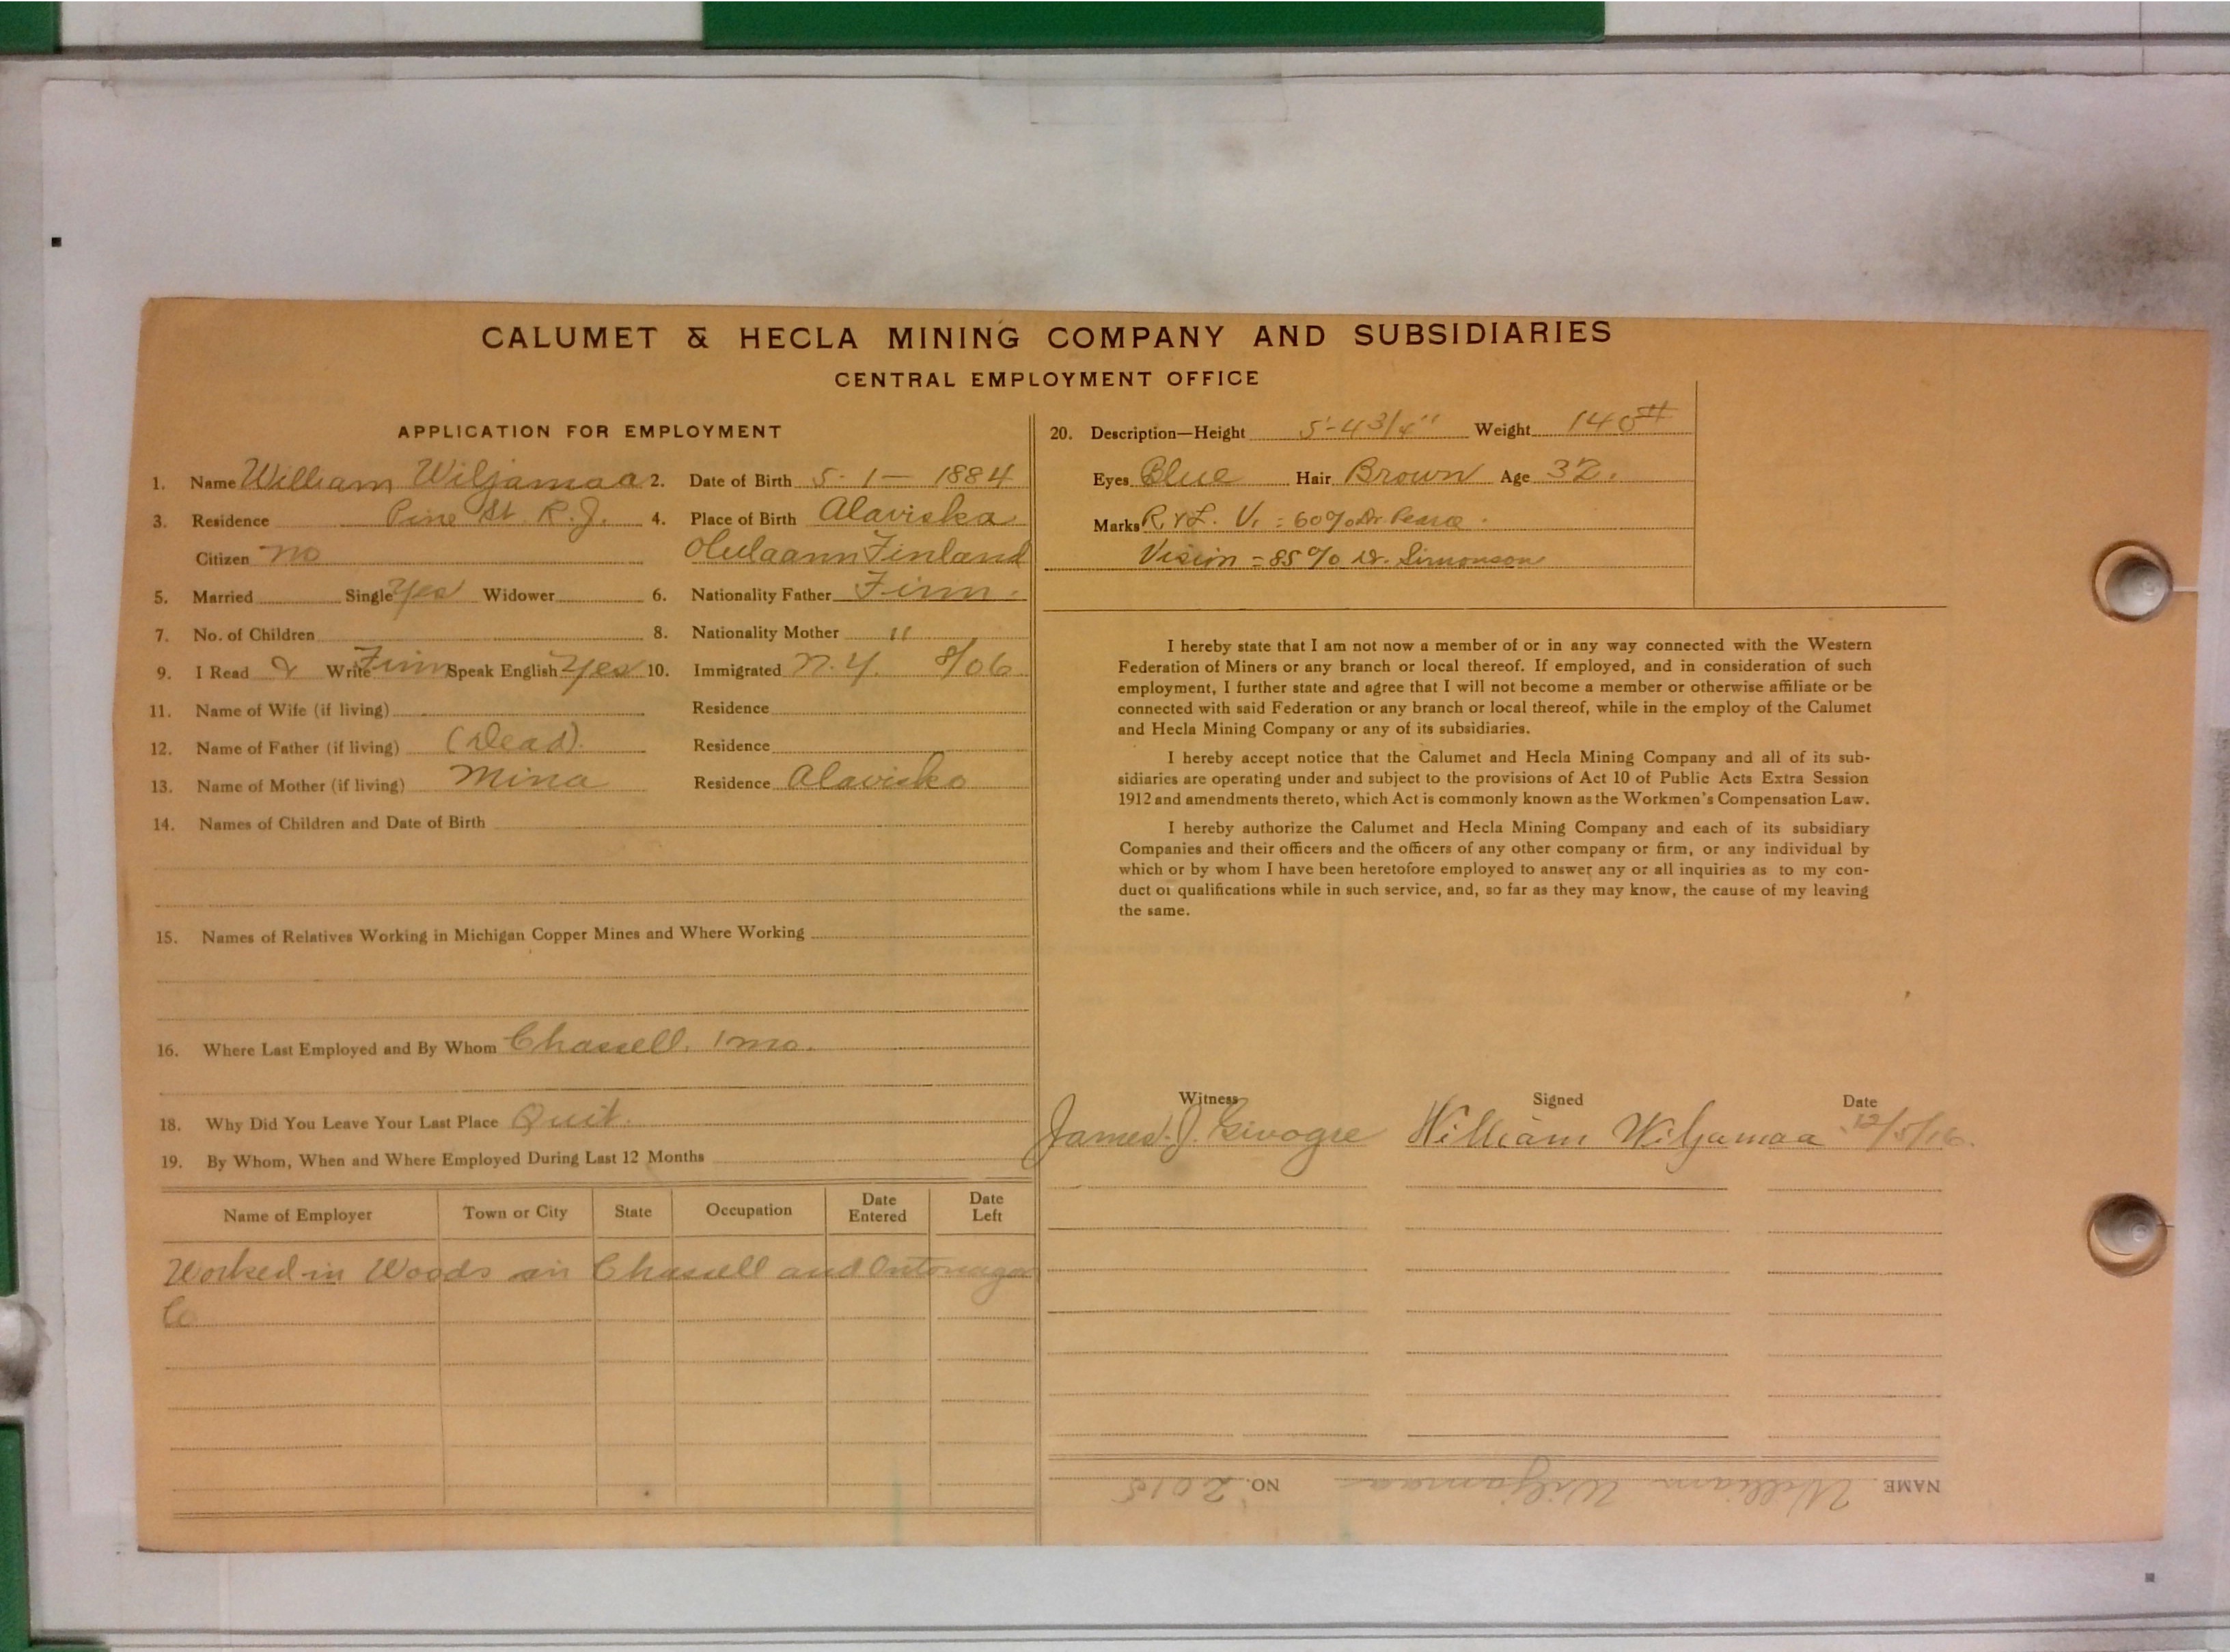 CALUMET & HECLA MINING COMPANY AND SUBSIDIARIES
CENTRAL EMPLOYMENT OFFICE
APPLICATION FOR EMPLOYMENT
1. Name William Wiljamaa 2. Date of Birth 5-1-1884
3. Residence Pine St. R.J. 4. Place of Birth Alaviska
Citizen no Olulaann Finland
5. Married Single Yes Widower 6. Nationality Father Finn.
7. No. of Children 8. Nationality Mother "
9. I Read & Write Finn Speak English Yes 10. Immigrated N.Y. 8/06
11. Name of Wife (if living) Residence
12. Name of Father (if living) (Dead). Residence
13. Name of Mother (if living) Mina Residence Alavisko
14. Names of Children and Date of Birth
15. Names of Relatives Working in Michigan Copper Mines and Where Working
16. Where Last Employed and By Whom Chassell. 1 mo.
18. Why Did You Leave Your Last Place Quit.
19. By Whom, When and Where Employed During Last 12 Months
Name of Employer Town or City State Occupation Date Entered Date Left
Worked in Woods in Chassell and Ontonagon
Co
20. Description—Height 5'-4 3/4" Weight 140#
Eyes Blue Hair Brown Age 32.
Marks R. & L. V. = 60% Dr. Pearce.
Vision = 85% Dr. Simonson
I hereby state that I am not now a member of or in any way connected with the Western
Federation of Miners or any branch or local thereof. If employed, and in consideration of such
employment, I further state and agree that I will not become a member or otherwise affiliate or be
connected with said Federation or any branch or local thereof, while in the employ of the Calumet
and Hecla Mining Company or any of its subsidiaries.
I hereby accept notice that the Calumet and Hecla Mining Company and all of its sub-
sidiaries are operating under and subject to the provisions of Act 10 of Public Acts Extra Session
1912 and amendments thereto, which Act is commonly known as the Workmen's Compensation Law.
I hereby authorize the Calumet and Hecla Mining Company and each of its subsidiary
Companies and their officers and the officers of any other company or firm, or any individual by
which or by whom I have been heretofore employed to answer any or all inquiries as to my con-
duct or qualifications while in such service, and, so far as they may know, the cause of my leaving
the same.
Witness Signed Date
James J. William Wiljamaa 12/5/16.
NAME William Wiljamaa NO. 2015